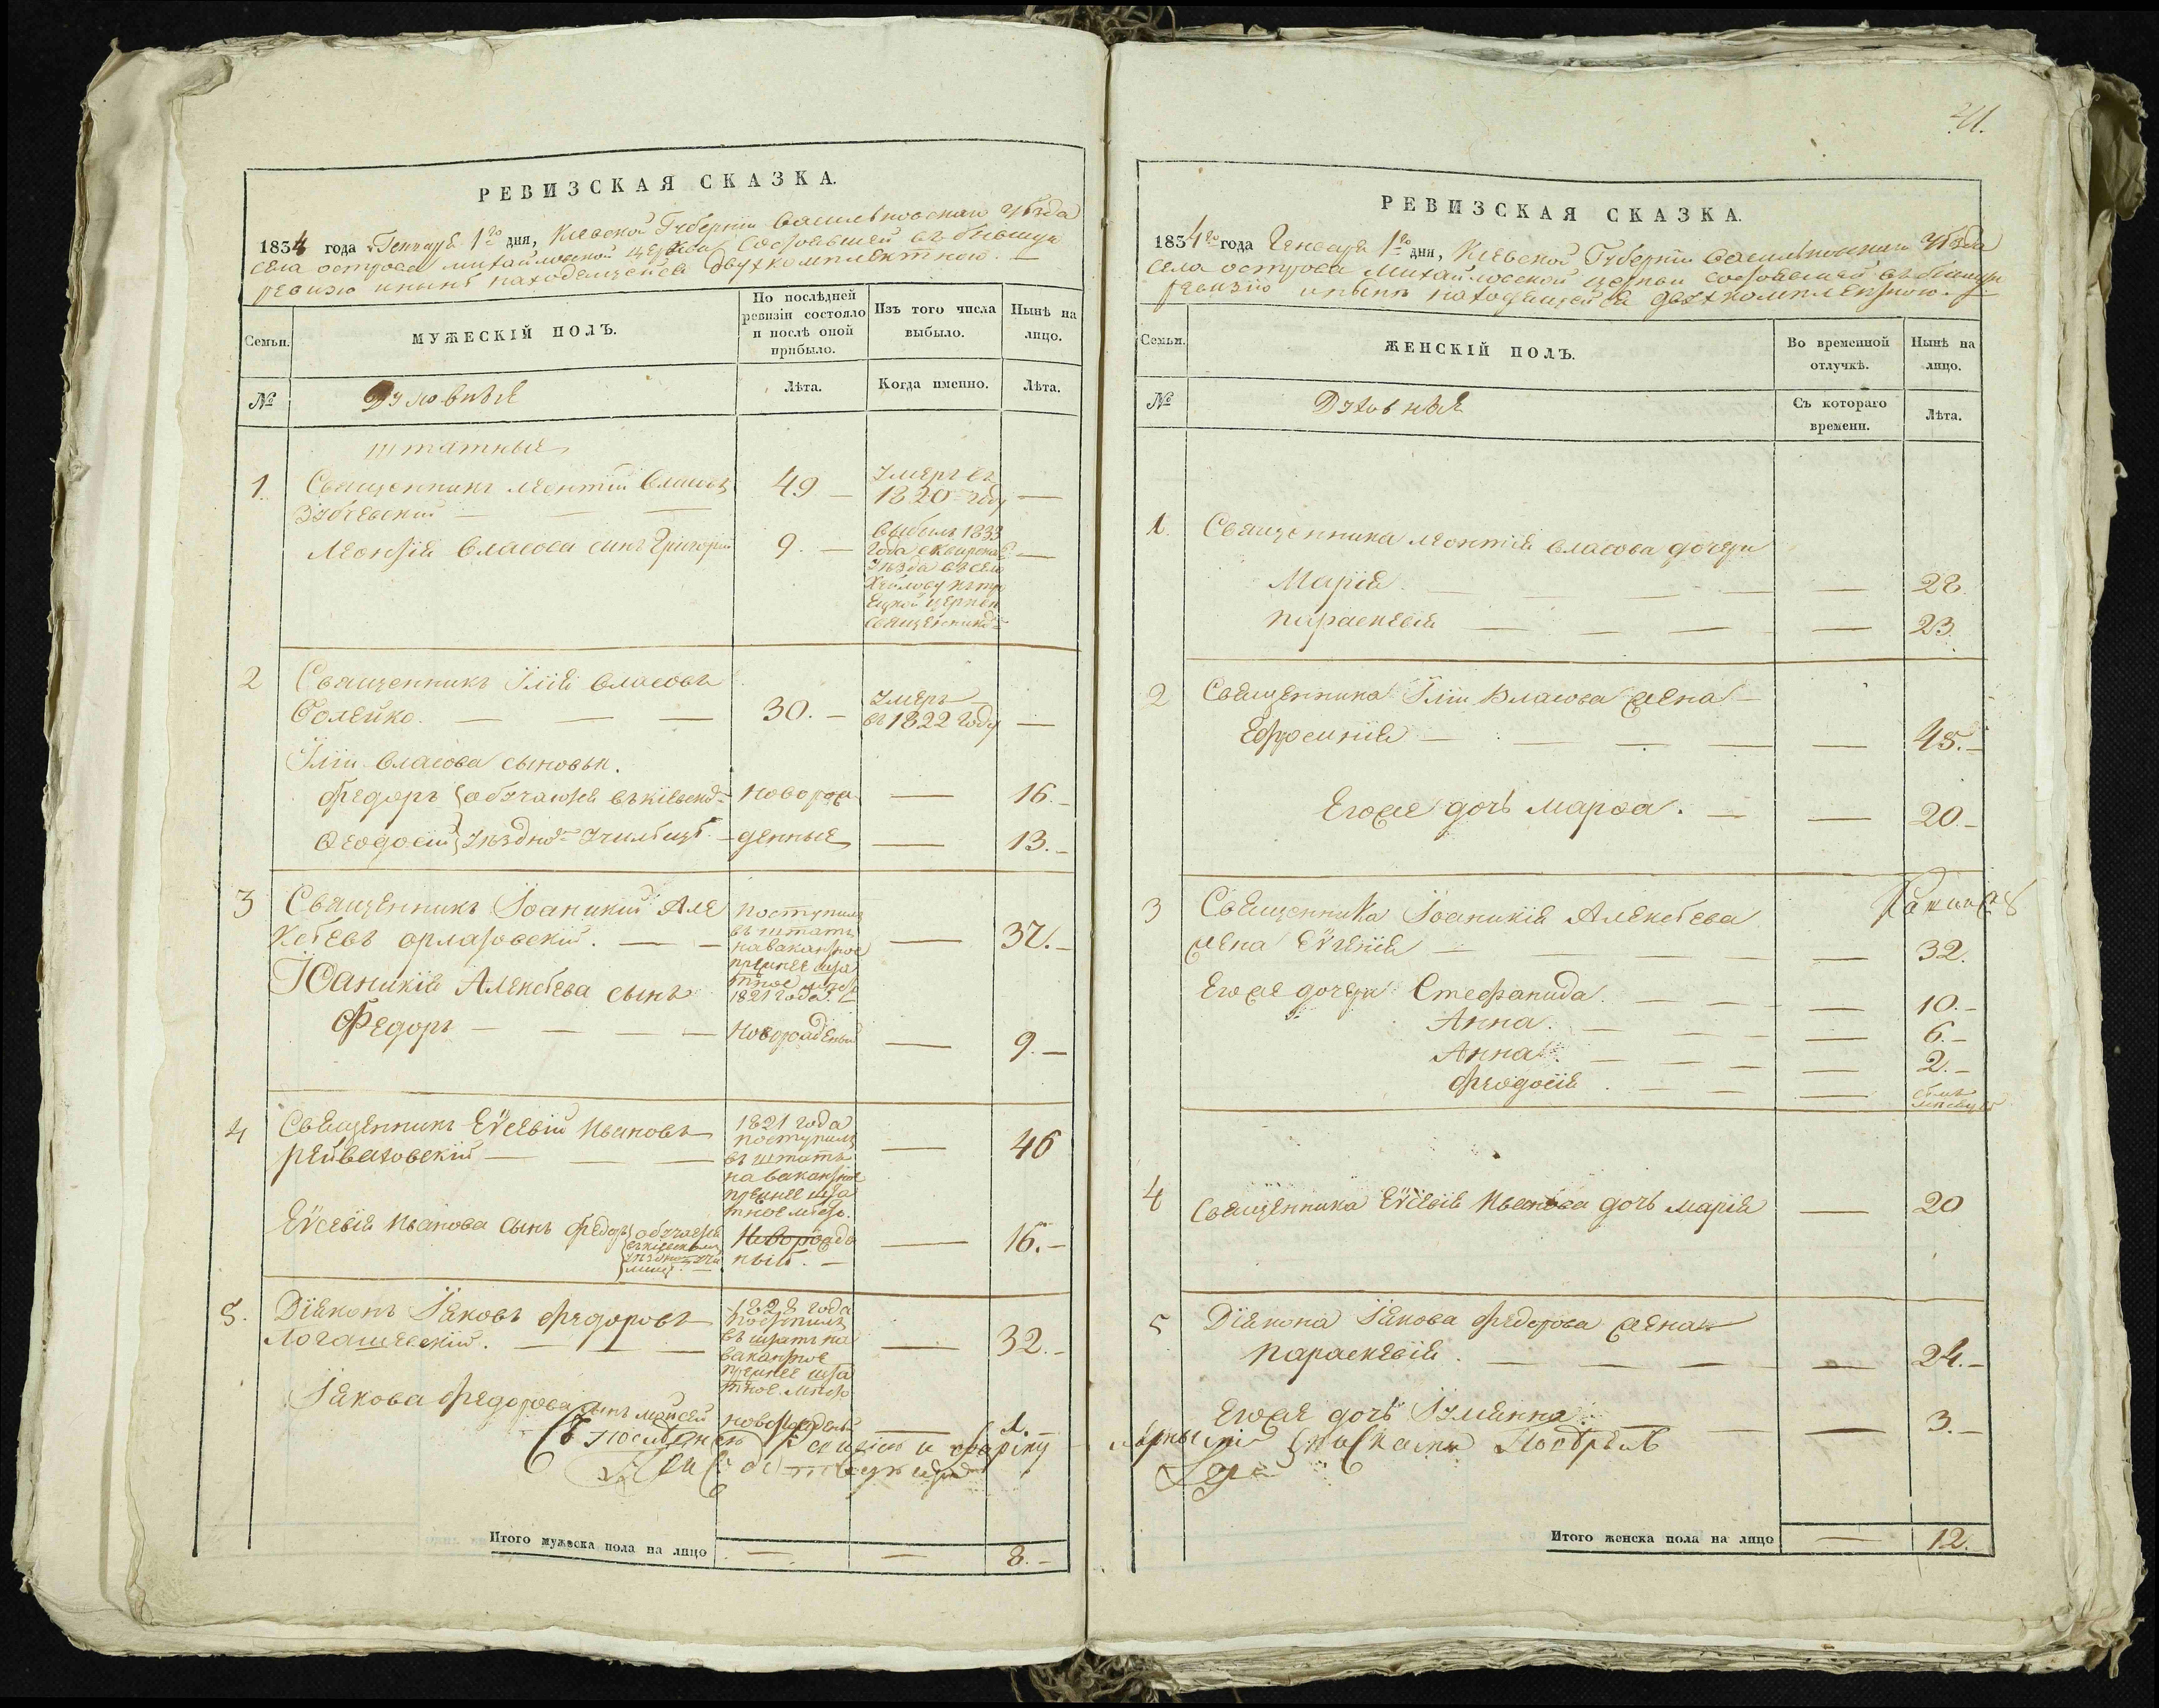 РЕВИЗСКАЯ СКАЗКА.
1834 года Генваря 1го дня, Киевской Губернiи Васильковскаго Уѣзда
села острова михайловской церкви Состоявшей въ бывшую
ревизiю инынѣ находящейся двухкомплектною.
Семьи.
МУЖЕСКІЙ ПОЛЪ.
По послѣдней
ревизіи состояло
и послѣ оной
прибыло.
Изъ того числа
выбыло.
Нынѣ на
лицо.
№
Духовныя
Лѣта.
Когда именно.
Лѣта.
штатные
1. Священникъ леонтiй Власовъ 49 — Умеръ въ
Зубчевскiй — 1820 году —
Леонтiя Власова синъ Григорiй 9. — выбылъ 1833
года сквирскаго —
Уѣзда въ село
церкви
2 Священникъ Iлiя власовъ
Солейко. — 30. — Умеръ
въ 1822 году —
Iлiи власова сыновья.
федоръ обучаются въкiевск новорож — 16. —
Ѳеодосiй Уѣздно Училищѣ. денные — 13. —
3 Священникъ Iоаникiй Але поступилъ
ксѣевъ орлатовскiй. — въ штатъ — 37. —
навакантное
прежнее шта
тное мѣсто
1821 года
Iоаникiя Алексѣева сынъ
Федоръ — новорожденый — 9. —
4 Священникъ Еѵсевiй Ивановъ 1821 года
рейваховскiй — поступилъ — 46
въ штатъ
на вакантное
прежнее шта
тное мѣсто.
Еѵсевiя Иванова сынъ Федоръ обучается Новорожде — 16. —
ный. —
5. Дiяконъ Iяковъ Федоровъ 1828 года
Логашевскiй. — поступилъ — 32. —
въ штатъ на
вакантное
прежнее шта
тное мѣсто
Iякова Федорова сынъ мойсей новорожденый — 1. —
Итого мужеска пола на лицо — — 8. —
241.
РЕВИЗСКАЯ СКАЗКА.
1834го года Генваря 1го дня, Кiевской Губернiи Васильковскаго Уѣзда
Села острова Михайловской церкви состоявшей въ бывшую
ревизiю инынѣ находящейся двухкомплектною.
Семьи.
ЖЕНСКІЙ ПОЛЪ.
Во временной
отлучкѣ.
Нынѣ на
лицо.
№
Духовныя
Съ котораго
времени.
Лѣта.
1. Священника леонтiя власова дочери
Марiя — — 28.
параскевiя — — 23.
2 Священника Iлiи Власова жена —
Ефросинiя — — 45. —
Егоже дочь марѳа. — — 20. —
3 Священника Iоаникiя Алексѣева
жена Еѵгенiя — — 32.
Егоже дочери Стефанида. — — 10. —
Анна. — — 6. —
Анна. — — 2. —
Феодосiя. — —
4 Священника Еѵсевiя Иванова дочь марiя — 20
5 Дiякона Iякова Федорова жена
параскевiя. — — 24. —
Егоже дочь Iулiянна — — 3. —
Итого женска пола на лицо — 12. —